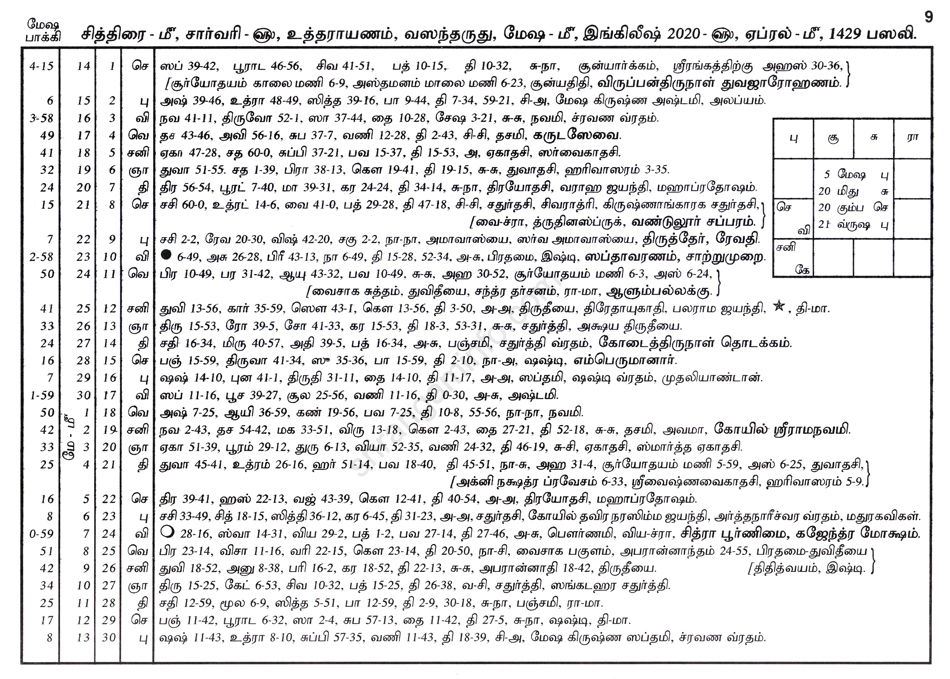 9
மேஷ பாக்கி
சித்திரை - மீ, சார்வரி - ௵, உத்தராயணம், வஸந்தருது, மேஷ - மீ, இங்கிலீஷ் 2020 - ௵, ஏப்ரல் - மீ, 1429 பஸலி.
4-15 14 1 செ ஸப் 39-42, பூராட 46-56, சிவ 41-51, பத் 10-15, தி 10-32, சு-நா, சூன்யார்க்கம், ஸ்ரீரங்கத்திற்கு அஹஸ் 30-36,
[சூர்யோதயம் காலை மணி 6-9, அஸ்தமனம் மாலை மணி 6-23, சூன்யதிதி, விருப்பன்திருநாள் துவஜாரோஹணம்.
6 15 2 பு அஷ் 39-46, உத்ரா 48-49, ஸித்த 39-16, பா 9-44, தி 7-34, 59-21, சி-அ, மேஷ கிருஷ்ண அஷ்டமி, அலப்யம்.
3-58 16 3 வி நவ 41-11, திருவோ 52-1, ஸா 37-44, தை 10-28, சேஷ 3-21, சு-சு, நவமி, ச்ரவண வ்ரதம்.
49 17 4 வெ தச 43-46, அவி 56-16, சுப 37-7, வணி 12-28, தி 2-43, சி-சி, தசமி, கருடஸேவை.
41 18 5 சனி ஏகா 47-28, சத 60-0, சுப்பி 37-21, பவ 15-37, தி 15-53, அ, ஏகாதசி, ஸர்வைகாதசி.
32 19 6 ஞா துவா 51-55. சத 1-39, பிரா 38-13, கௌ 19-41, தி 19-15, சு-சு, துவாதசி, ஹரிவாஸரம் 3-35.
24 20 7 தி திர 56-54, பூரட் 7-40, மா 39-31, கர 24-24, தி 34-14, சு-நா, திரயோதசி, வராஹ ஜயந்தி, மஹாப்ரதோஷம்.
15 21 8 செ சசி 60-0, உத்ரட் 14-6, வை 41-0, பத் 29-28, தி 47-18, சி-சி, சதுர்தசி, சிவராத்ரி, கிருஷ்ணாங்காரக சதுர்தசி,
[வை-ச்ரா, த்ருதினஸ்ப்ருக், வண்டுலூர் சப்பரம்.
7 22 9 பு சசி 2-2, ரேவ 20-30, விஷ் 42-20, சகு 2-2, நா-நா, அமாவாஸ்யை, ஸர்வ அமாவாஸ்யை, திருத்தேர், ரேவதி.
2-58 23 10 வி ● 6-49, அசு 26-28, பிரீ 43-13, நா 6-49, தி 15-28, 52-34, அ-சு, பிரதமை, இஷ்டி, ஸப்தாவரணம், சாற்றுமுறை.
50 24 11 வெ பிர 10-49, பர 31-42, ஆயு 43-32, பவ 10-49, சு-சு, அஹ 30-52, சூர்யோதயம் மணி 6-3, அஸ் 6-24,
[வைசாக சுத்தம், துவிதீயை, சந்த்ர தர்சனம், ரா-மா, ஆளும்பல்லக்கு.
41 25 12 சனி துவி 13-56, கார் 35-59, ஸௌ 43-1, கௌ 13-56, தி 3-50, அ-அ, திருதீயை, திரேதாயுகாதி, பலராம ஜயந்தி, ★, தி-மா.
33 26 13 ஞா திரு 15-53, ரோ 39-5, சோ 41-33, கர 15-53, தி 18-3, 53-31, சு-சு, சதுர்த்தி, அக்ஷய திருதீயை.
24 27 14 தி சதி 16-34, மிரு 40-57, அதி 39-5, பத் 16-34, அ-சு, பஞ்சமி, சதுர்த்தி வ்ரதம், கோடைத்திருநாள் தொடக்கம்.
16 28 15 செ பஞ் 15-59, திருவா 41-34, ஸு 35-36, பா 15-59, தி 2-10, நா-அ, ஷஷ்டி, எம்பெருமானார்.
7 29 16 பு ஷஷ் 14-10, புன 41-1, திருதி 31-11, தை 14-10, தி 11-17, அ-அ, ஸப்தமி, ஷஷ்டி வ்ரதம், முதலியாண்டான்.
1-59 30 17 வி ஸப் 11-16, பூச 39-27, சூல 25-56, வணி 11-16, தி 0-30, அ-சு, அஷ்டமி.
50 1 18 வெ அஷ் 7-25, ஆயி 36-59, கண் 19-56, பவ 7-25, தி 10-8, 55-56, நா-நா, நவமி.
மே - மீ
42 2 19 சனி நவ 2-43, தச 54-42, மக 33-51, விரு 13-18, கௌ 2-43, தை 27-21, தி 52-18, சு-சு, தசமி, அவமா, கோயில் ஸ்ரீராமநவமி.
33 3 20 ஞா ஏகா 51-39, பூரம் 29-12, துரு 6-13, வியா 52-35, வணி 24-32, தி 46-19, சு-சி, ஏகாதசி, ஸ்மார்த்த ஏகாதசி.
25 4 21 தி துவா 45-41, உத்ரம் 26-16, ஹர் 51-14, பவ 18-40, தி 45-51, நா-சு, அஹ 31-4, சூர்யோதயம் மணி 5-59, அஸ் 6-25, துவாதசி,
[அக்னி நக்ஷத்ர ப்ரவேசம் 6-33, ஸ்ரீவைஷ்ணவைகாதசி, ஹரிவாஸரம் 5-9.
16 5 22 செ திர 39-41, ஹஸ் 22-13, வஜ் 43-39, கௌ 12-41, தி 40-54, அ-அ, திரயோதசி, மஹாப்ரதோஷம்.
8 6 23 பு சசி 33-49, சித் 18-15, ஸித்தி 36-12, கர 6-45, தி 31-23, அ-அ, சதுர்தசி, கோயில் தவிர நரஸிம்ம ஜயந்தி, அர்த்தநாரீச்வர வ்ரதம், மதுரகவிகள்.
0-59 7 24 வி ○ 28-16, ஸ்வா 14-31, விய 29-2, பத் 1-2, பவ 27-14, தி 27-46, அ-சு, பௌர்ணமி, விய-ச்ரா, சித்ரா பூர்ணிமை, கஜேந்த்ர மோக்ஷம்.
51 8 25 வெ பிர 23-14, விசா 11-16, வரி 22-15, கௌ 23-14, தி 20-50, நா-சி, வைசாக பகுளம், அபரான்னாந்தம் 24-55, பிரதமை-துவிதீயை
42 9 26 சனி துவி 18-52, அனு 8-38, பரி 16-2, கர 18-52, தி 22-13, சு-சு, அபரான்னாதி 18-42, திருதீயை. [திதித்வயம், இஷ்டி.
34 10 27 ஞா திரு 15-25, கேட் 6-53, சிவ 10-32, பத் 15-25, தி 26-38, வ-சி, சதுர்த்தி, ஸங்கடஹர சதுர்த்தி.
25 11 28 தி சதி 12-59, மூல 6-9, ஸித்த 5-51, பா 12-59, தி 2-9, 30-18, சு-நா, பஞ்சமி, ரா-மா.
17 12 29 செ பஞ் 11-42, பூராட 6-32, ஸா 2-4, சுப 57-13, தை 11-42, தி 27-5, சு-நா, ஷஷ்டி, தி-மா.
8 13 30 பு ஷஷ் 11-43, உத்ரா 8-10, சுப்பி 57-35, வணி 11-43, தி 18-39, சி-அ, மேஷ கிருஷ்ண ஸப்தமி, ச்ரவண வ்ரதம்.
பு சூ சு ரா
5 மேஷ பு
20 மிது சு
செ 20 கும்ப செ
வி 21 வ்ருஷ பு
சனி
கே